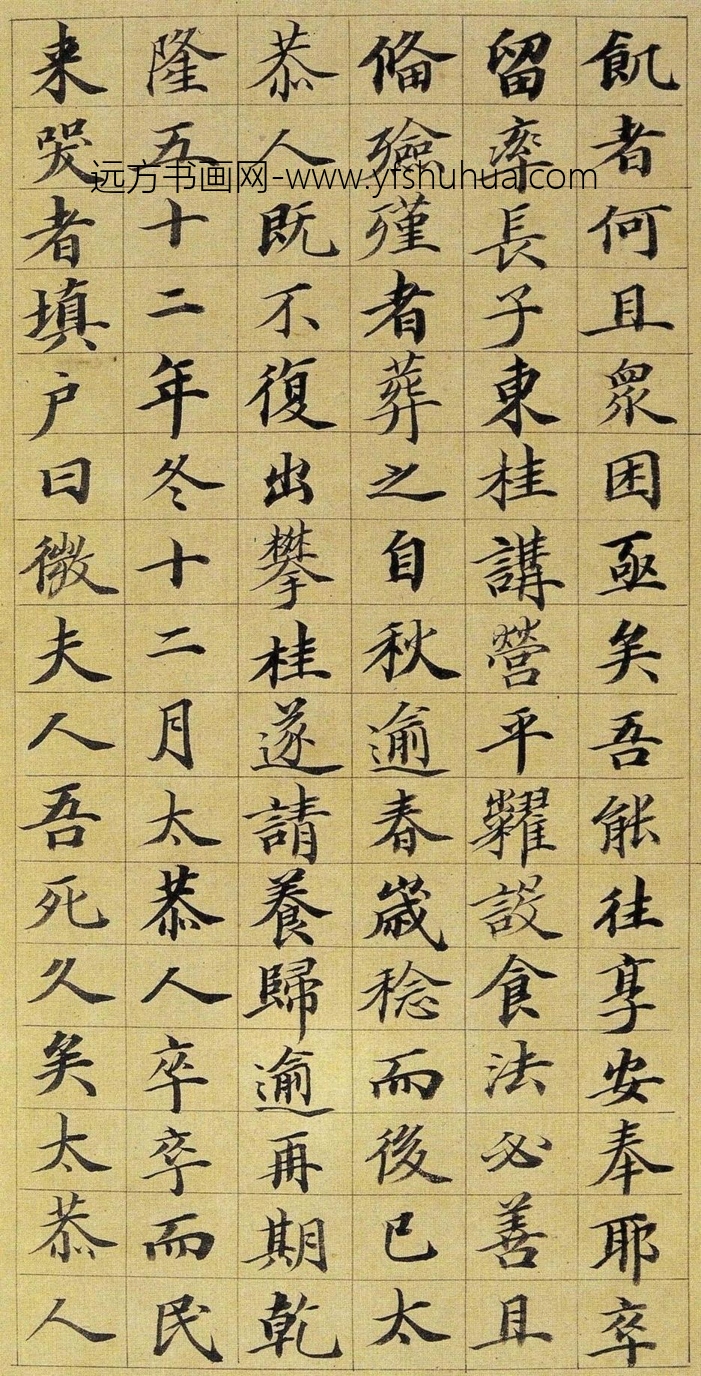 飢者何且衆困亟矣吾能往享安奉耶卒
留率長子東桂講營平糶設食法必善且
俻殮殣者葬之自秋逾春歳稔而後已太
恭人既不復出攀桂遂請養歸逾再期乾
隆五十二年冬十二月太恭人卒卒而民
来哭者填户曰微夫人吾死久矣太恭人
远方书画网-www.yfshuhua.com